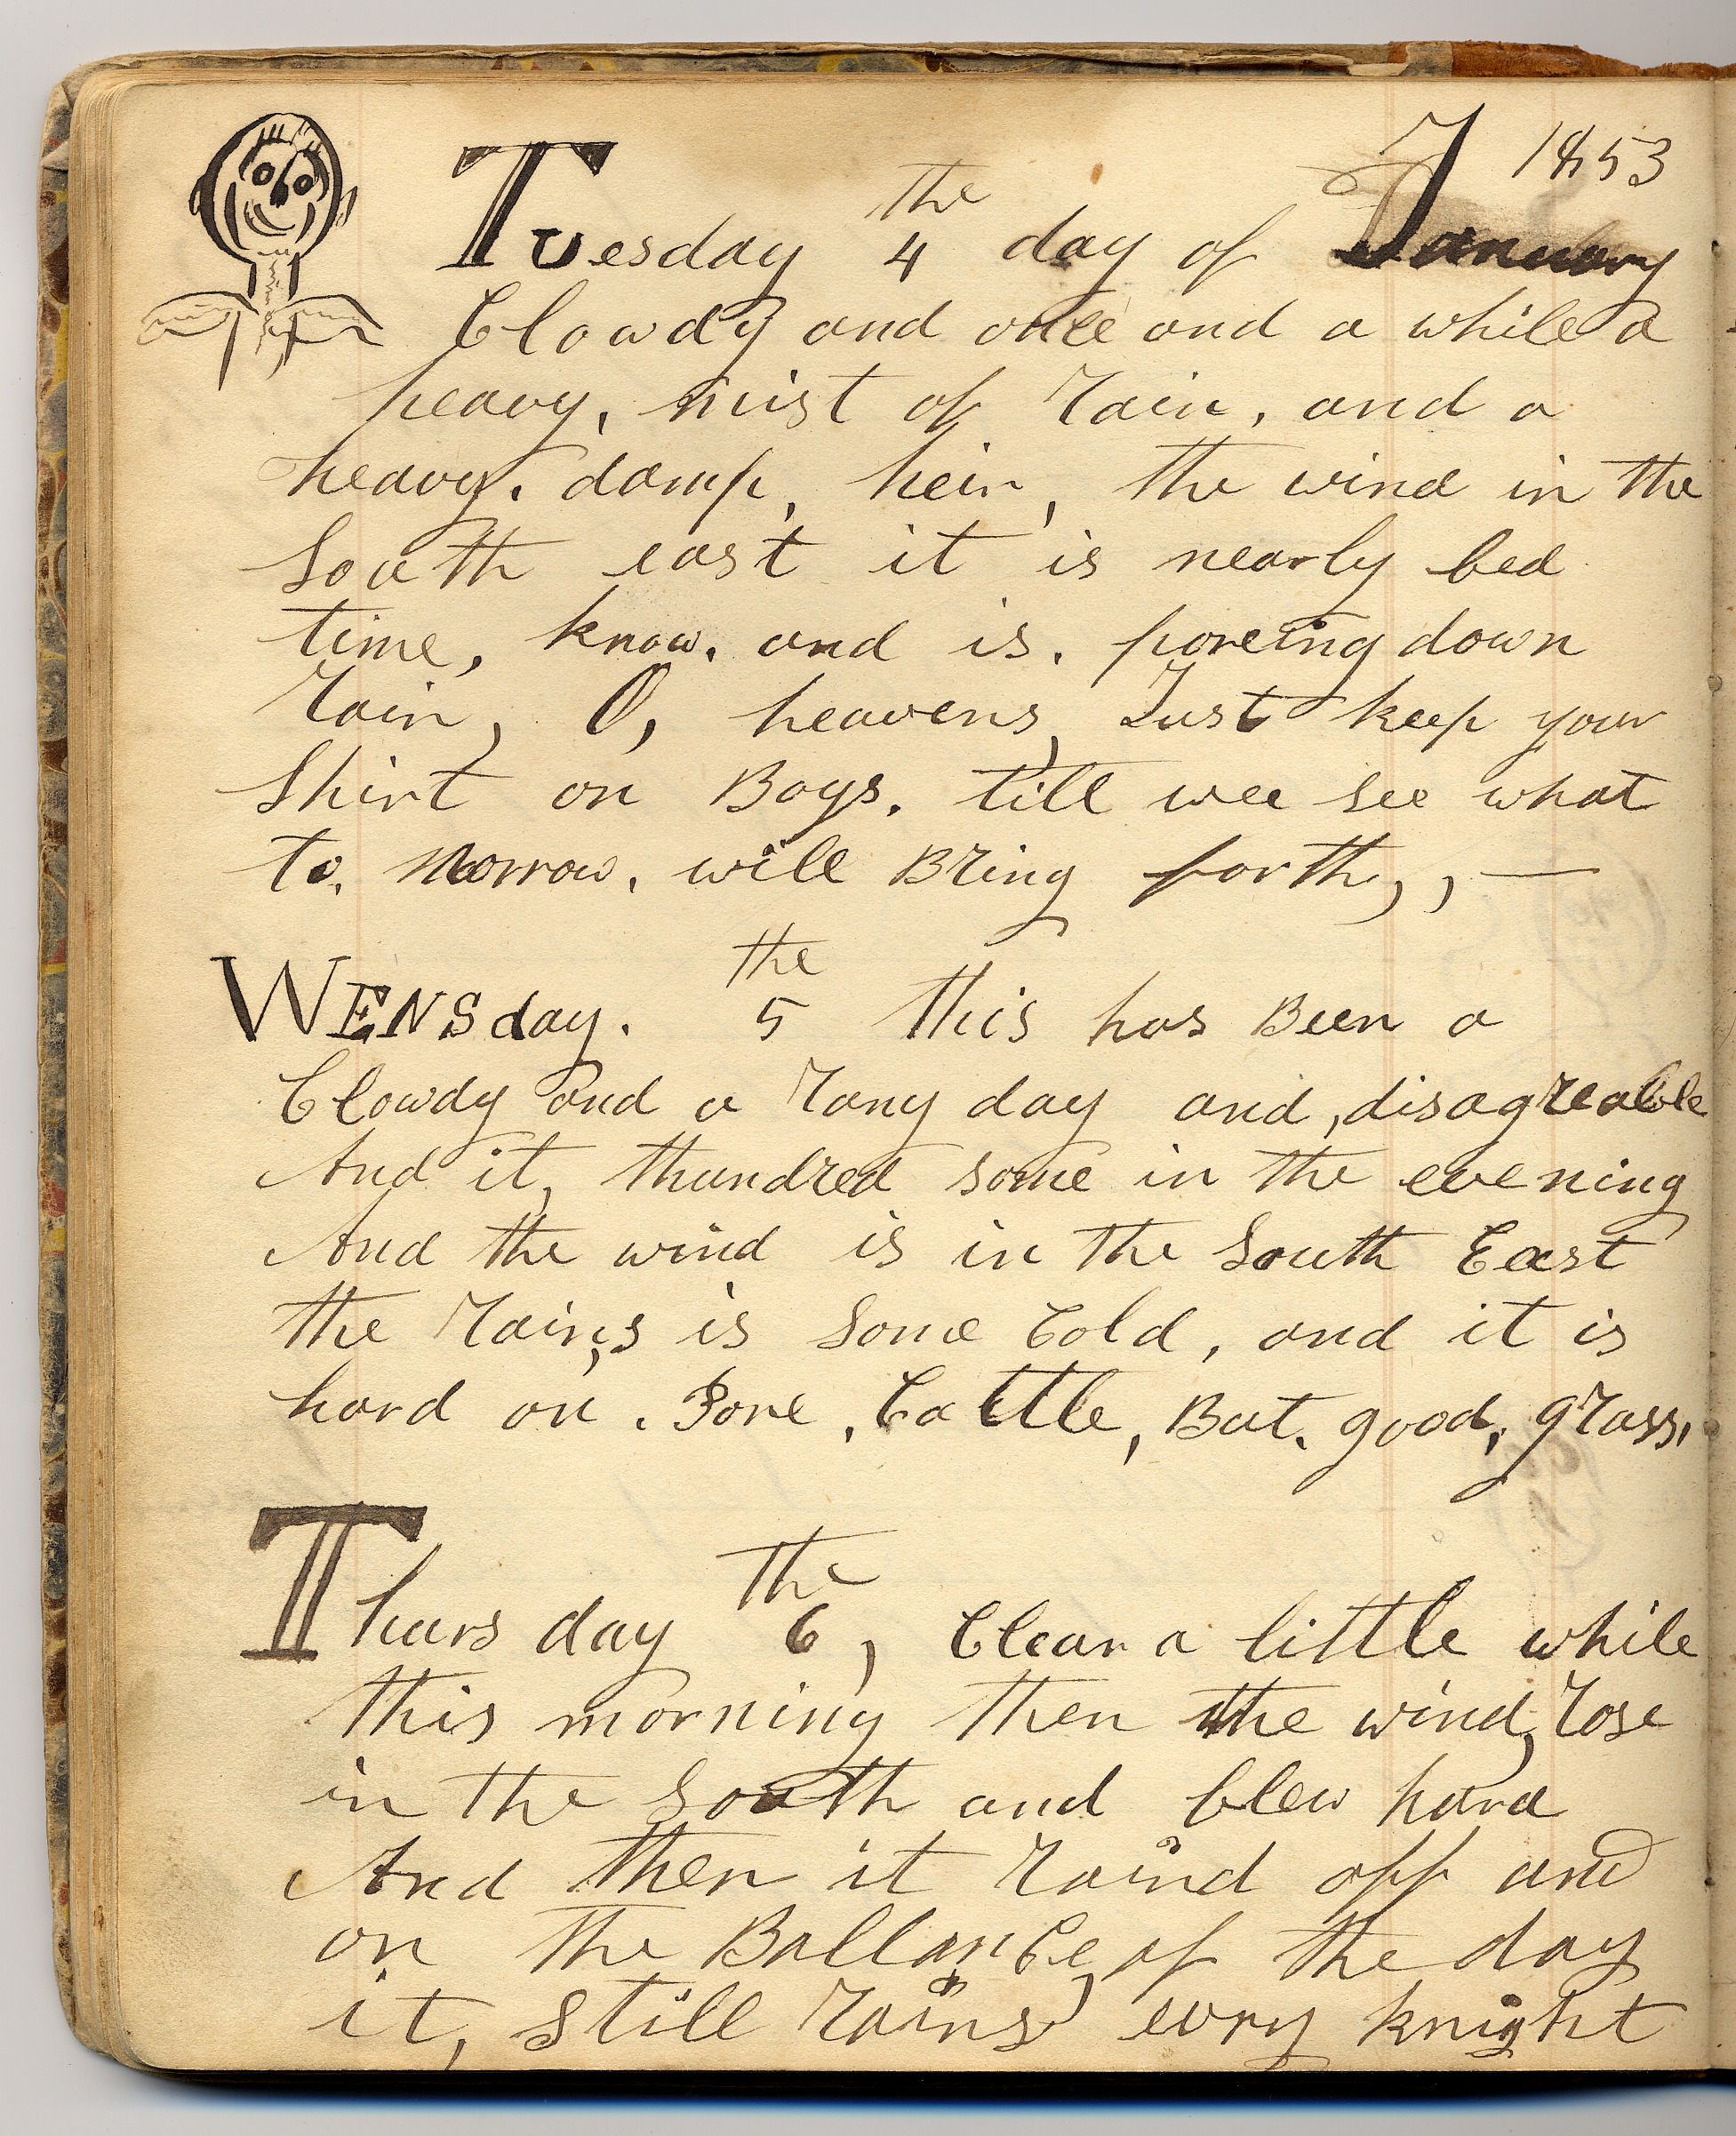 1853
Tuesday the 4 day of January
Clowdy and once and a while a
heavy, mist of rain, and a
heavy. damp, heir, the wind in the
South east it is nearly bed
time, know. and is. poreing down
rain, O, heavens, Just keep your
Shirt on Boys. till wee see what
to. Morrow. will Bring forth,, —
WENSday. the 5 this has Been a
Clowdy and a rany day and, disagreable
And it, thundred some in the evening
And the wind is in the South East
the rains is Some Cold, and it is
hard on. Pore, Cattle, But. good, grass,
Thursday the 6, Clear a little while
this morning then the wind, rose
in the South and blew hard
And then it raind off and
on the Ballance of the day
it, Still rains, evry knight